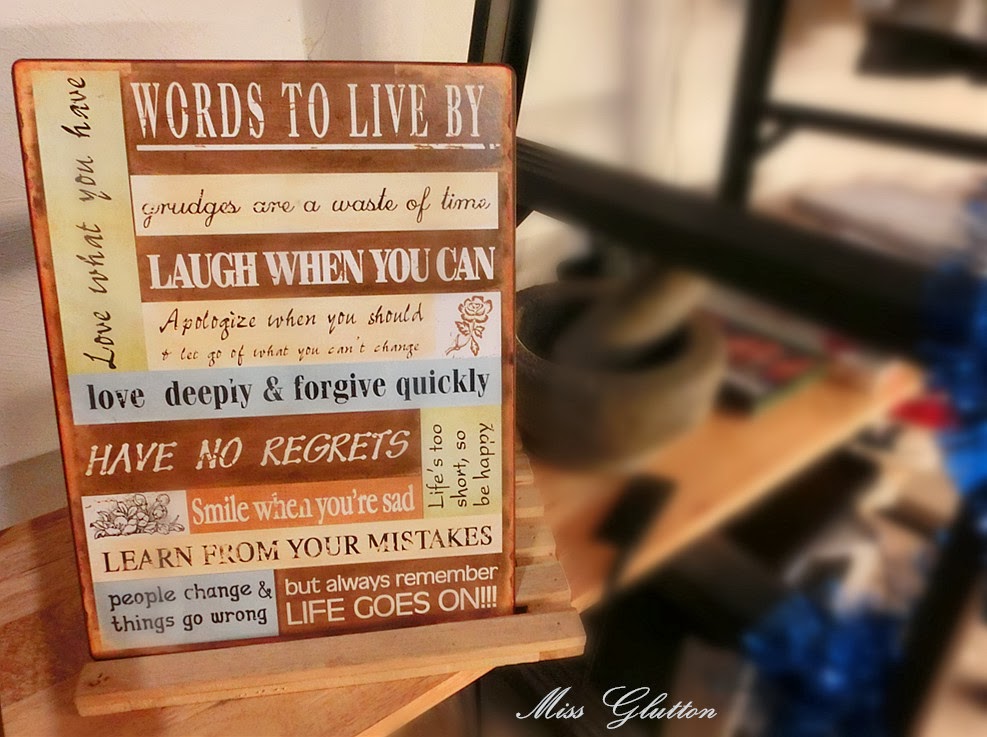 WORDS TO LIVE BY
Love what you have
grudges are a waste of time
LAUGH WHEN YOU CAN
Apologize when you should
& let go of what you can't change
love deeply & forgive quickly
HAVE NO REGRETS
Life's too
short, so
be happy
Smile when you're sad
LEARN FROM YOUR MISTAKES
people change &
things go wrong
but always remember
LIFE GOES ON!!!
Miss Glutton